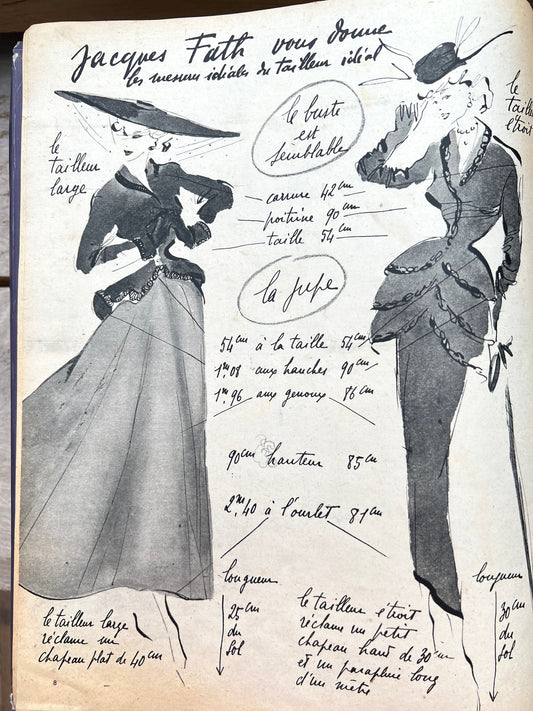 Jacques Fath vous donne
les mesures idéales du tailleur idéal
le
tailleur
large
le buste
est
semblable
le
taille
étroit
carrure 42 cm
poitrine 90 cm
taille 54 cm
la jupe
54 cm à la taille 54 cm
1m08 aux hanches 90 cm
1m,96 aux genoux 86 cm
90 cm hauteur 85 cm
2m,40 à l'ourlet 81 cm
longueur
25 cm
du
sol
longueur
30 cm
du
sol
le tailleur large
réclame un
chapeau plat de 40 cm
le tailleur étroit
réclame un petit
chapeau haut de 30 cm
et un parapluie long
d'un mètre
8